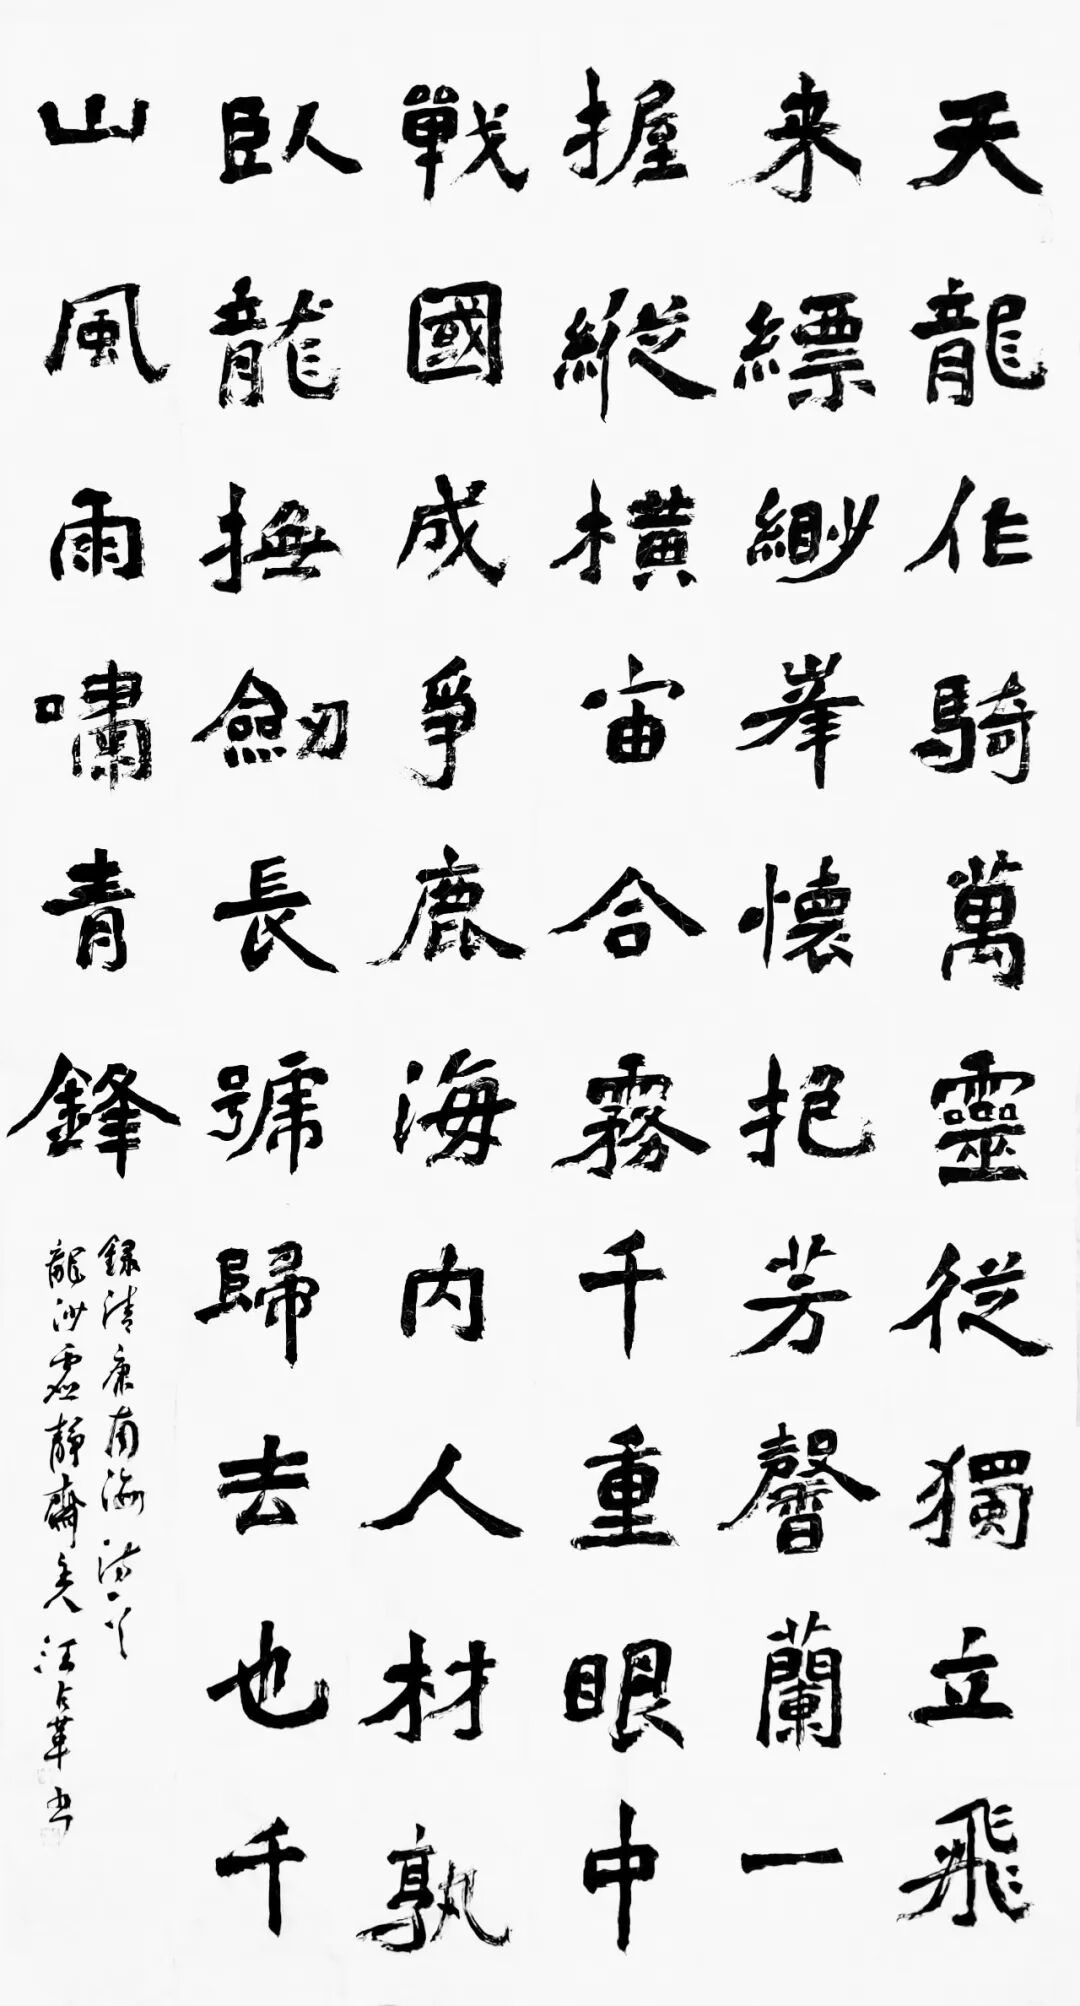 天龍作騎萬靈從獨立飛
来縹緲峯懷抱芳馨蘭一
握縱橫宙合霧千重眼中
戰國成爭鹿海內人材孰
臥龍撫劒長號歸去也千
山風雨嘯青鋒
錄清康南海詩一首
龍沙虛靜齋主人江占革书